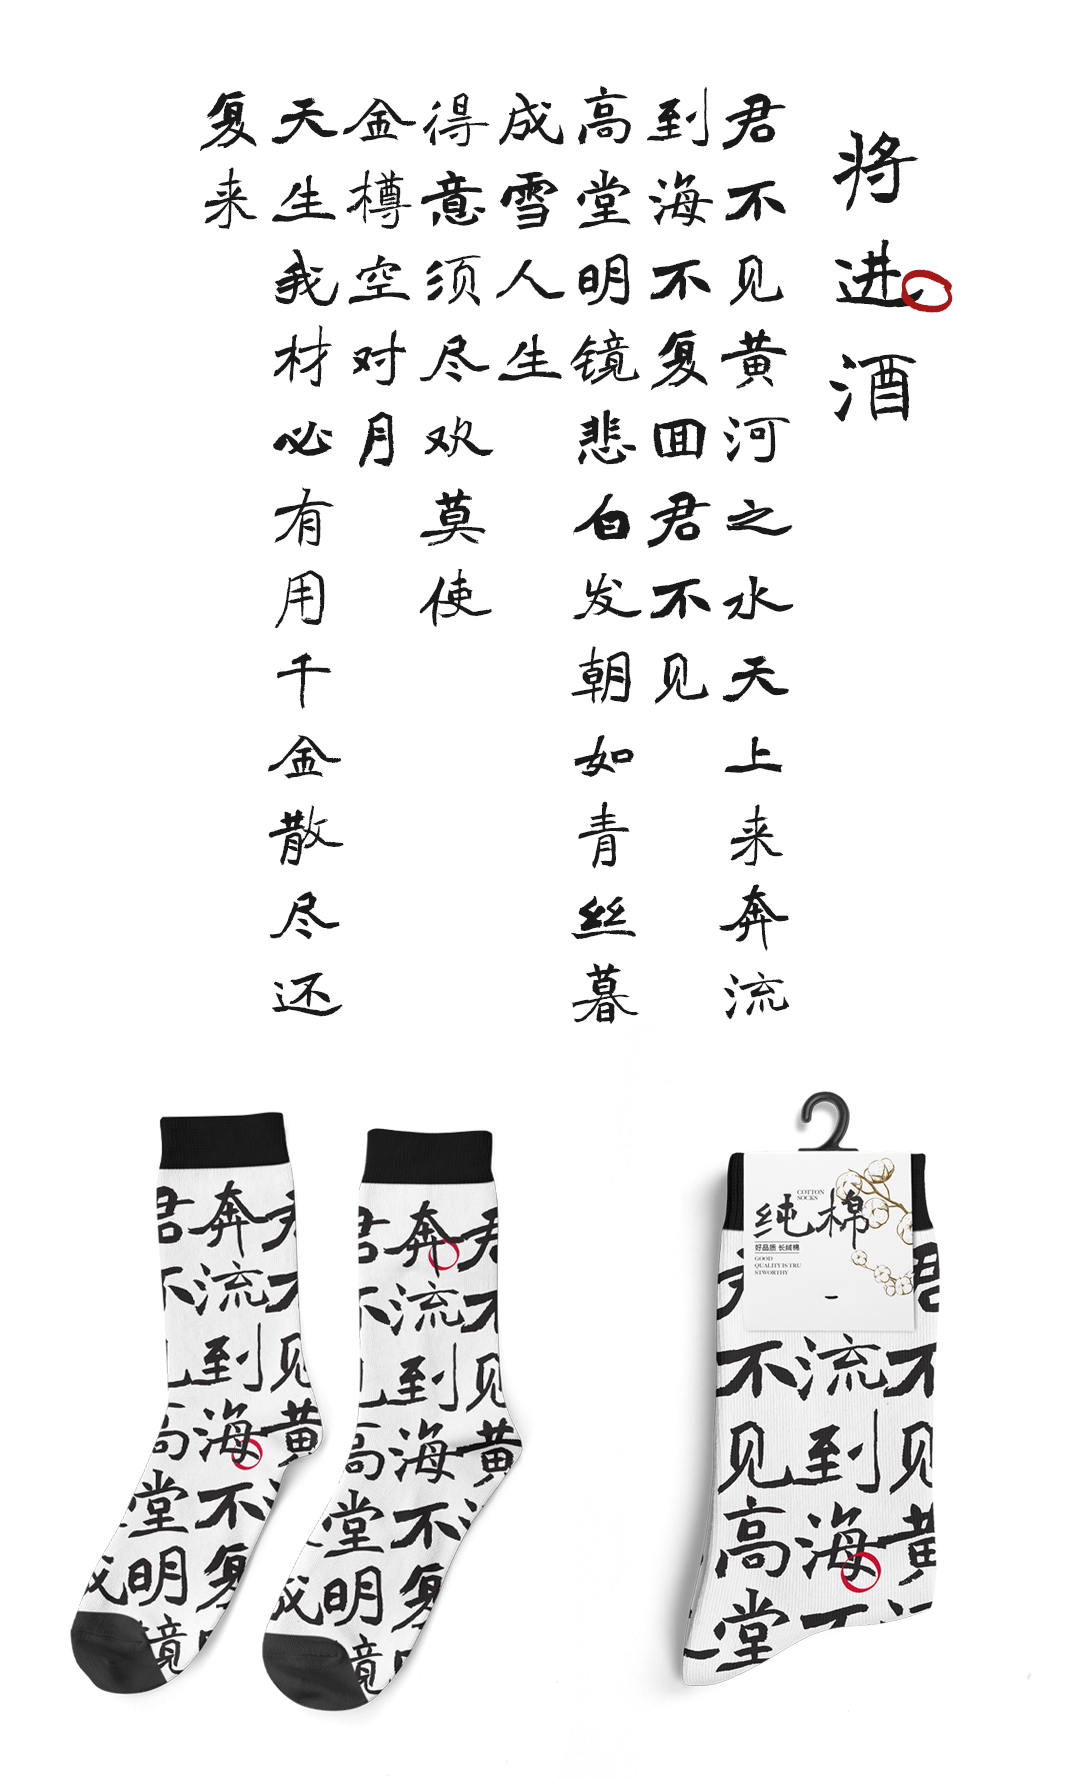 将进酒
君不见黄河之水天上来奔流
到海不复回君不见
高堂明镜悲白发朝如青丝暮
成雪人生
得意须尽欢莫使
金樽空对月
天生我材必有用千金散尽还
复来
君奔君
不流不
见到见
高海黄
堂不
成明复
镜
君奔君
不流不
见到见
高海黄
堂不
成明复
镜
COTTON
SOCKS
纯棉
好品质 长绒棉
GOOD
QUALITY IS TRU
STWORTHY
君
不流不
见到见
高海黄
堂不